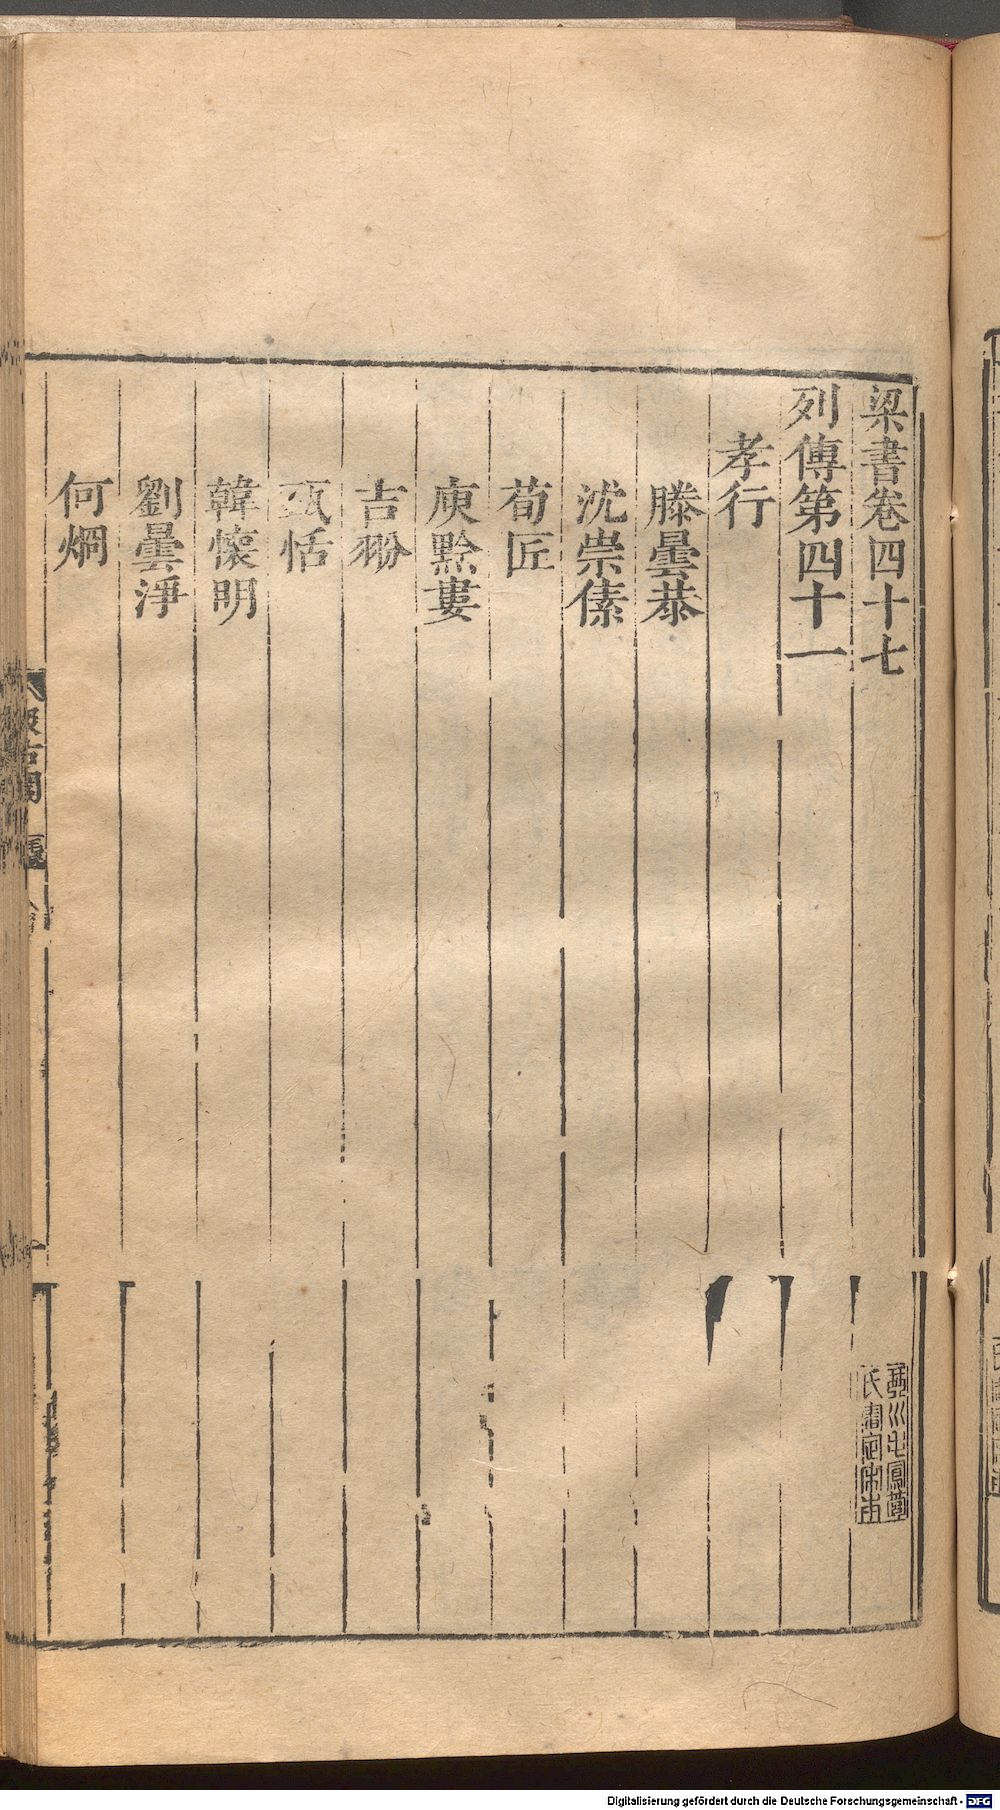 梁書卷四十七
列傳第四十一
孝行
滕曇恭
沈崇傃
荀匠
庾黔婁
吉翂
甄恬
韓懷明
劉曇淨
何烱
汲古閣
Digitalisierung gefördert durch die Deutsche Forschungsgemeinschaft - DFG